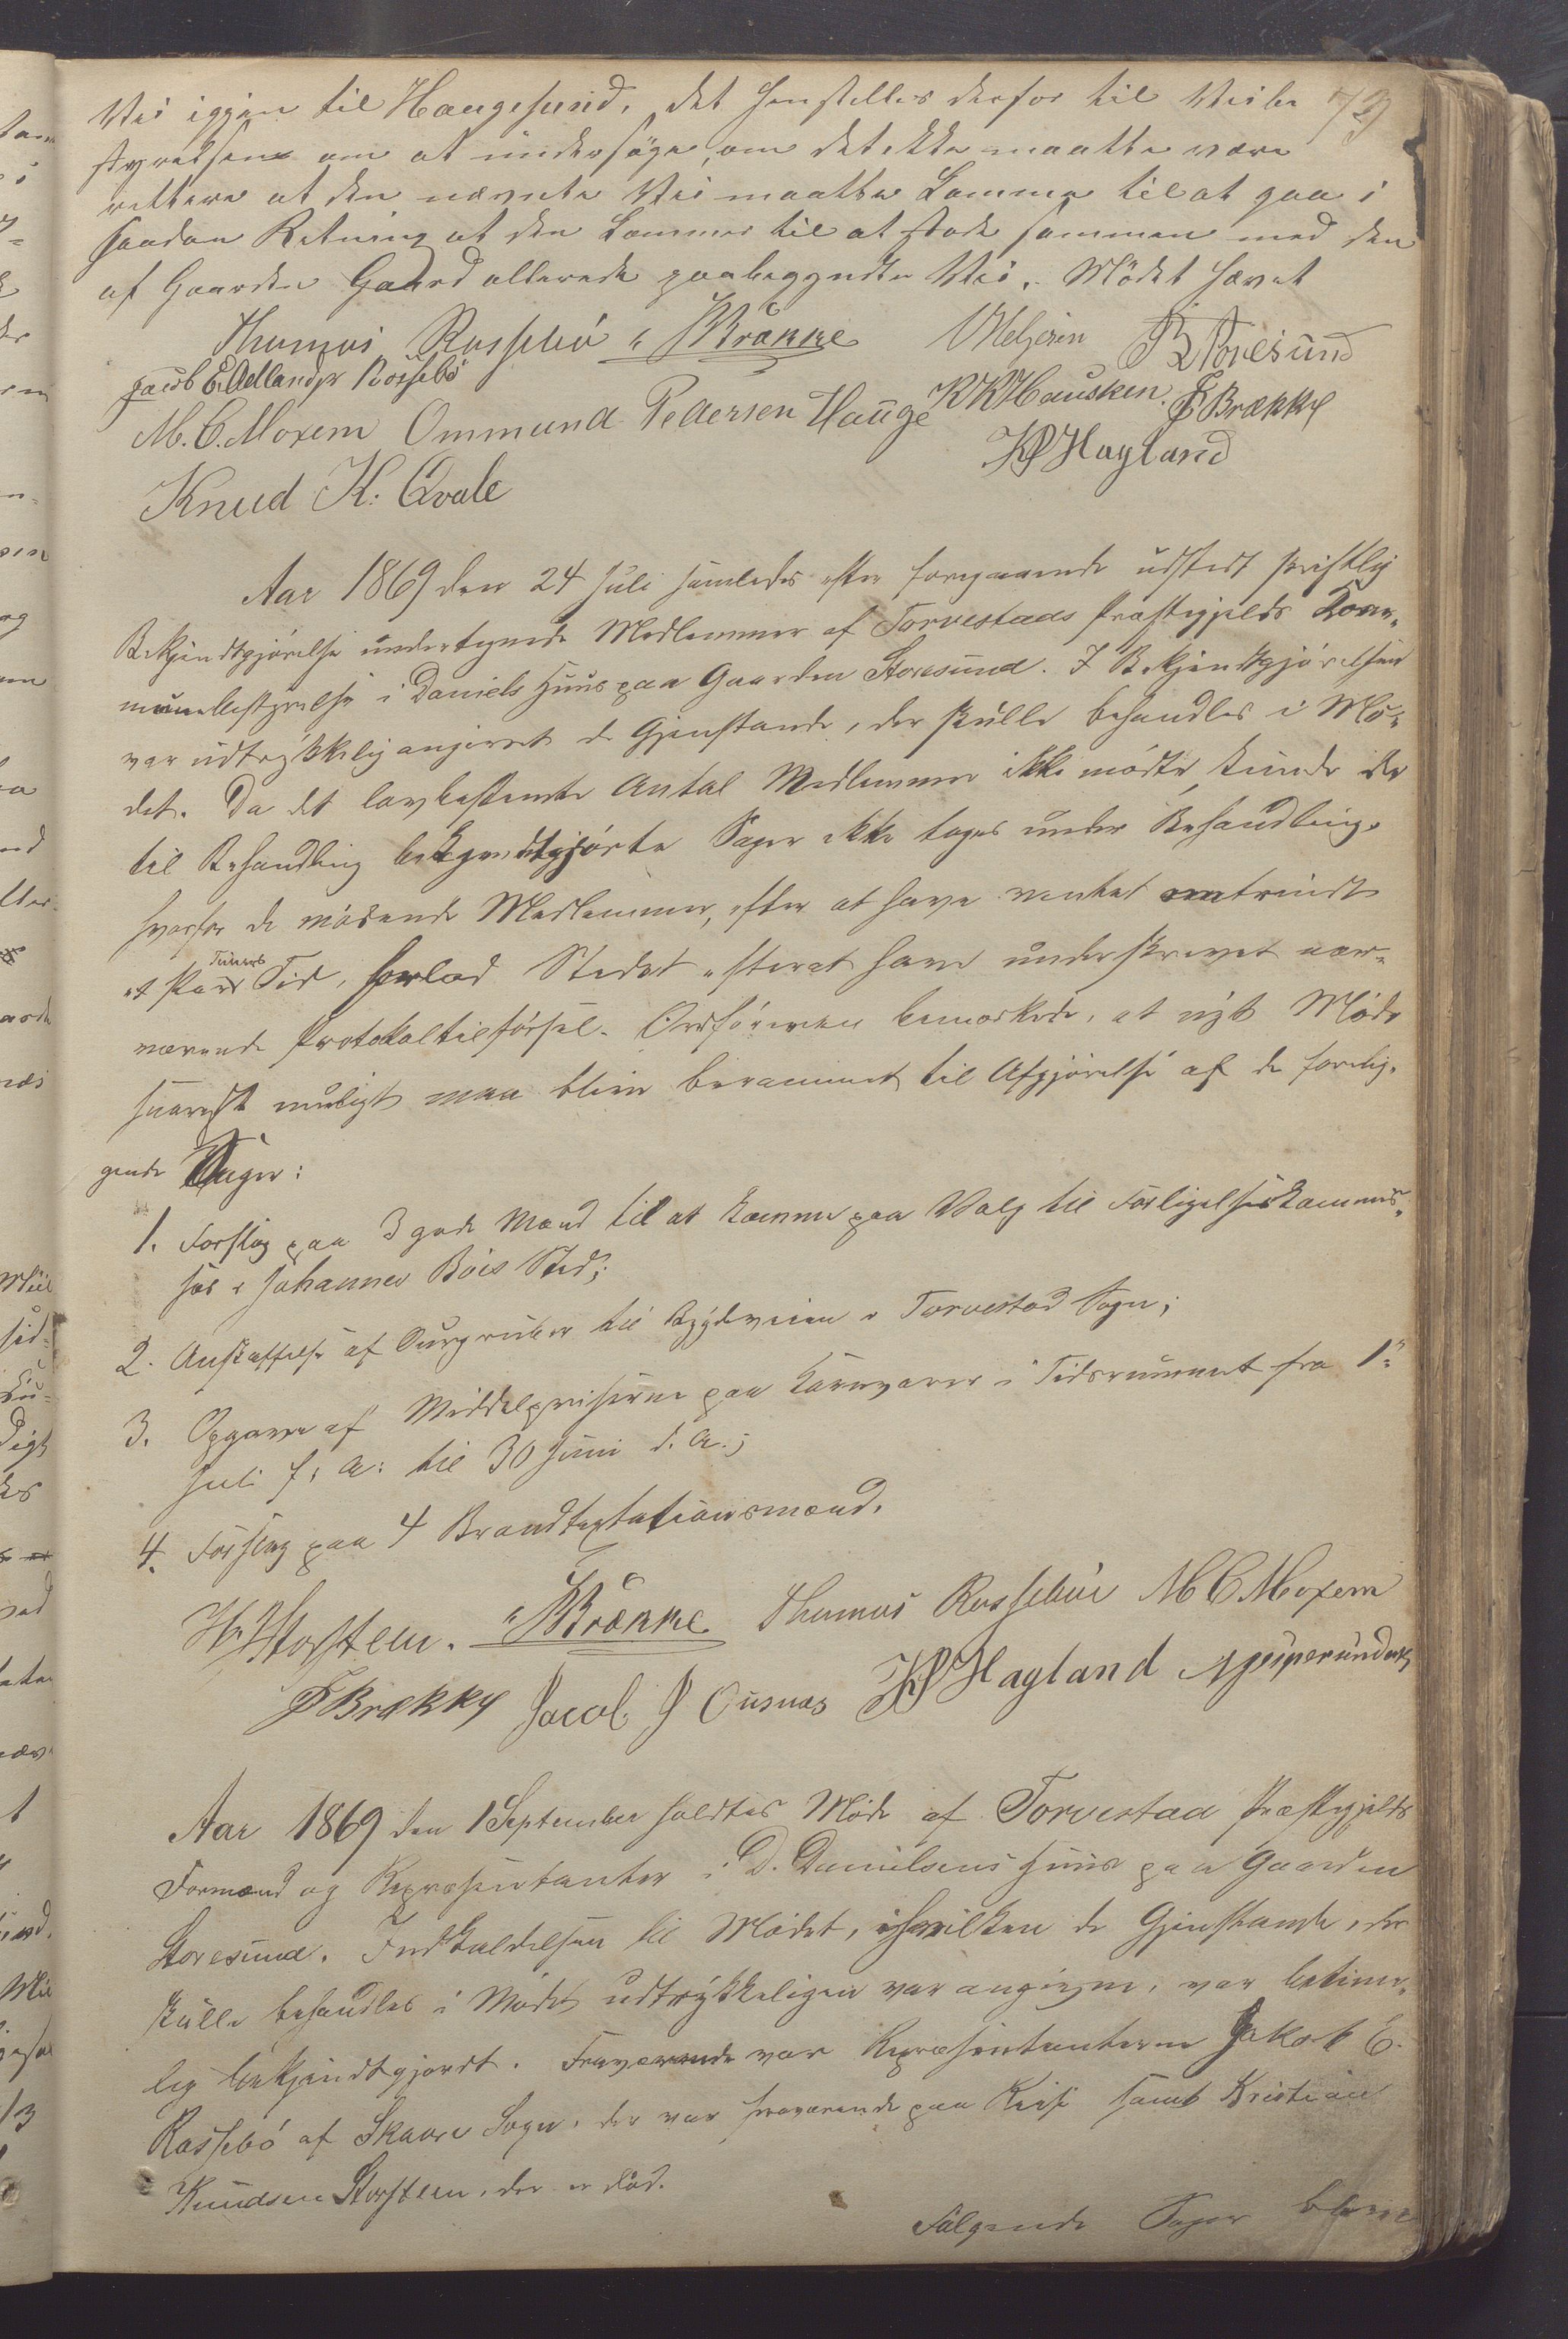 73
Vei iggjen til Haugesund, det henstilles derfor til Veibe
styrelsen om at undersöge, om det ikke maatte være
rettere at den nævnte Vei maatte komme til at gaa i
saadan Retning at den kommer til at støde sammen med den
af Gaarden Gaard allerede paabegyndte Vei. Mödet hævet
Thomas Rossebö JBrække OMeljeren Storesund
Jacob E. Rossebö KKHausken. TBrekke
M. C. Moxem Ommund Pedersen Hauge KPHagland
Knud K. Qvale
Aar 1869 den 24 Juli samledes efter foregaaende udstedt skriftlig
Bekjendtgjörelse undertegnede Medlemmer af Torvestads Præstegjelds Kom-
munebestyrelse i Daniels Huus paa Gaarden Storesund. I Bekjendtgjörelsen
var udtrykkelig angivet de Gjenstande, der skulle behandles i Mö-
det. Da det lovbestemte Antal Medlemmer ikke mödte, kunde de
til Behandling bekjendtgjörte Sager ikke tages under Behandling,
hvorfor de mödende Medlemmer, efter at have ventet omtrindt
et Par Timers Tid, forlod Stedet efterat have underskrevet nær-
værende Protokoltilförsel. Ordföreren bemærkede, at nyt Möde
snarest muligt maa blive berammet til Afgjörelse af de forelig-
gende Sager:
1. Forslag paa 3 gode Mænd til at komme paa Valg til Forligelseskommis-
sær i Johannes Böes Sted;
2. Anskaffelse af Surgruber til Bygdeveien i Torvestad Sogn;
3. Opgave af Middelpriserne paa Kornvarer i Tidsrummet fra 1ste
Juli f. A. til 30 Juni d. A.;
4. Forslag paa 4 Brandtaxtationsmænd.
Storsteen. JBrække Thomas Rossebö M C Moxem
TBrekke Jacob J Ousnæs KPHagland
Aar 1869 den 1 September holdtes Möde af Torvestad Præstegjelds
Formænd og Repræsentanter i D. Danielsens Huus paa Gaarden
Storesund. Indkaldelsen til Mödet, ihvilken de Gjenstande, der
skulle behandles i Mödet udtrykkeligen var angivne, var betime-
lig bekjendtgjordt. Fraværende var Repræsentanterne Jakob E.
Rossebö af Skaare Sogn, der var fraværende paa Reise samt Kristian
Knudsen Storsteen, der er död.
Fölgende Sager bleve